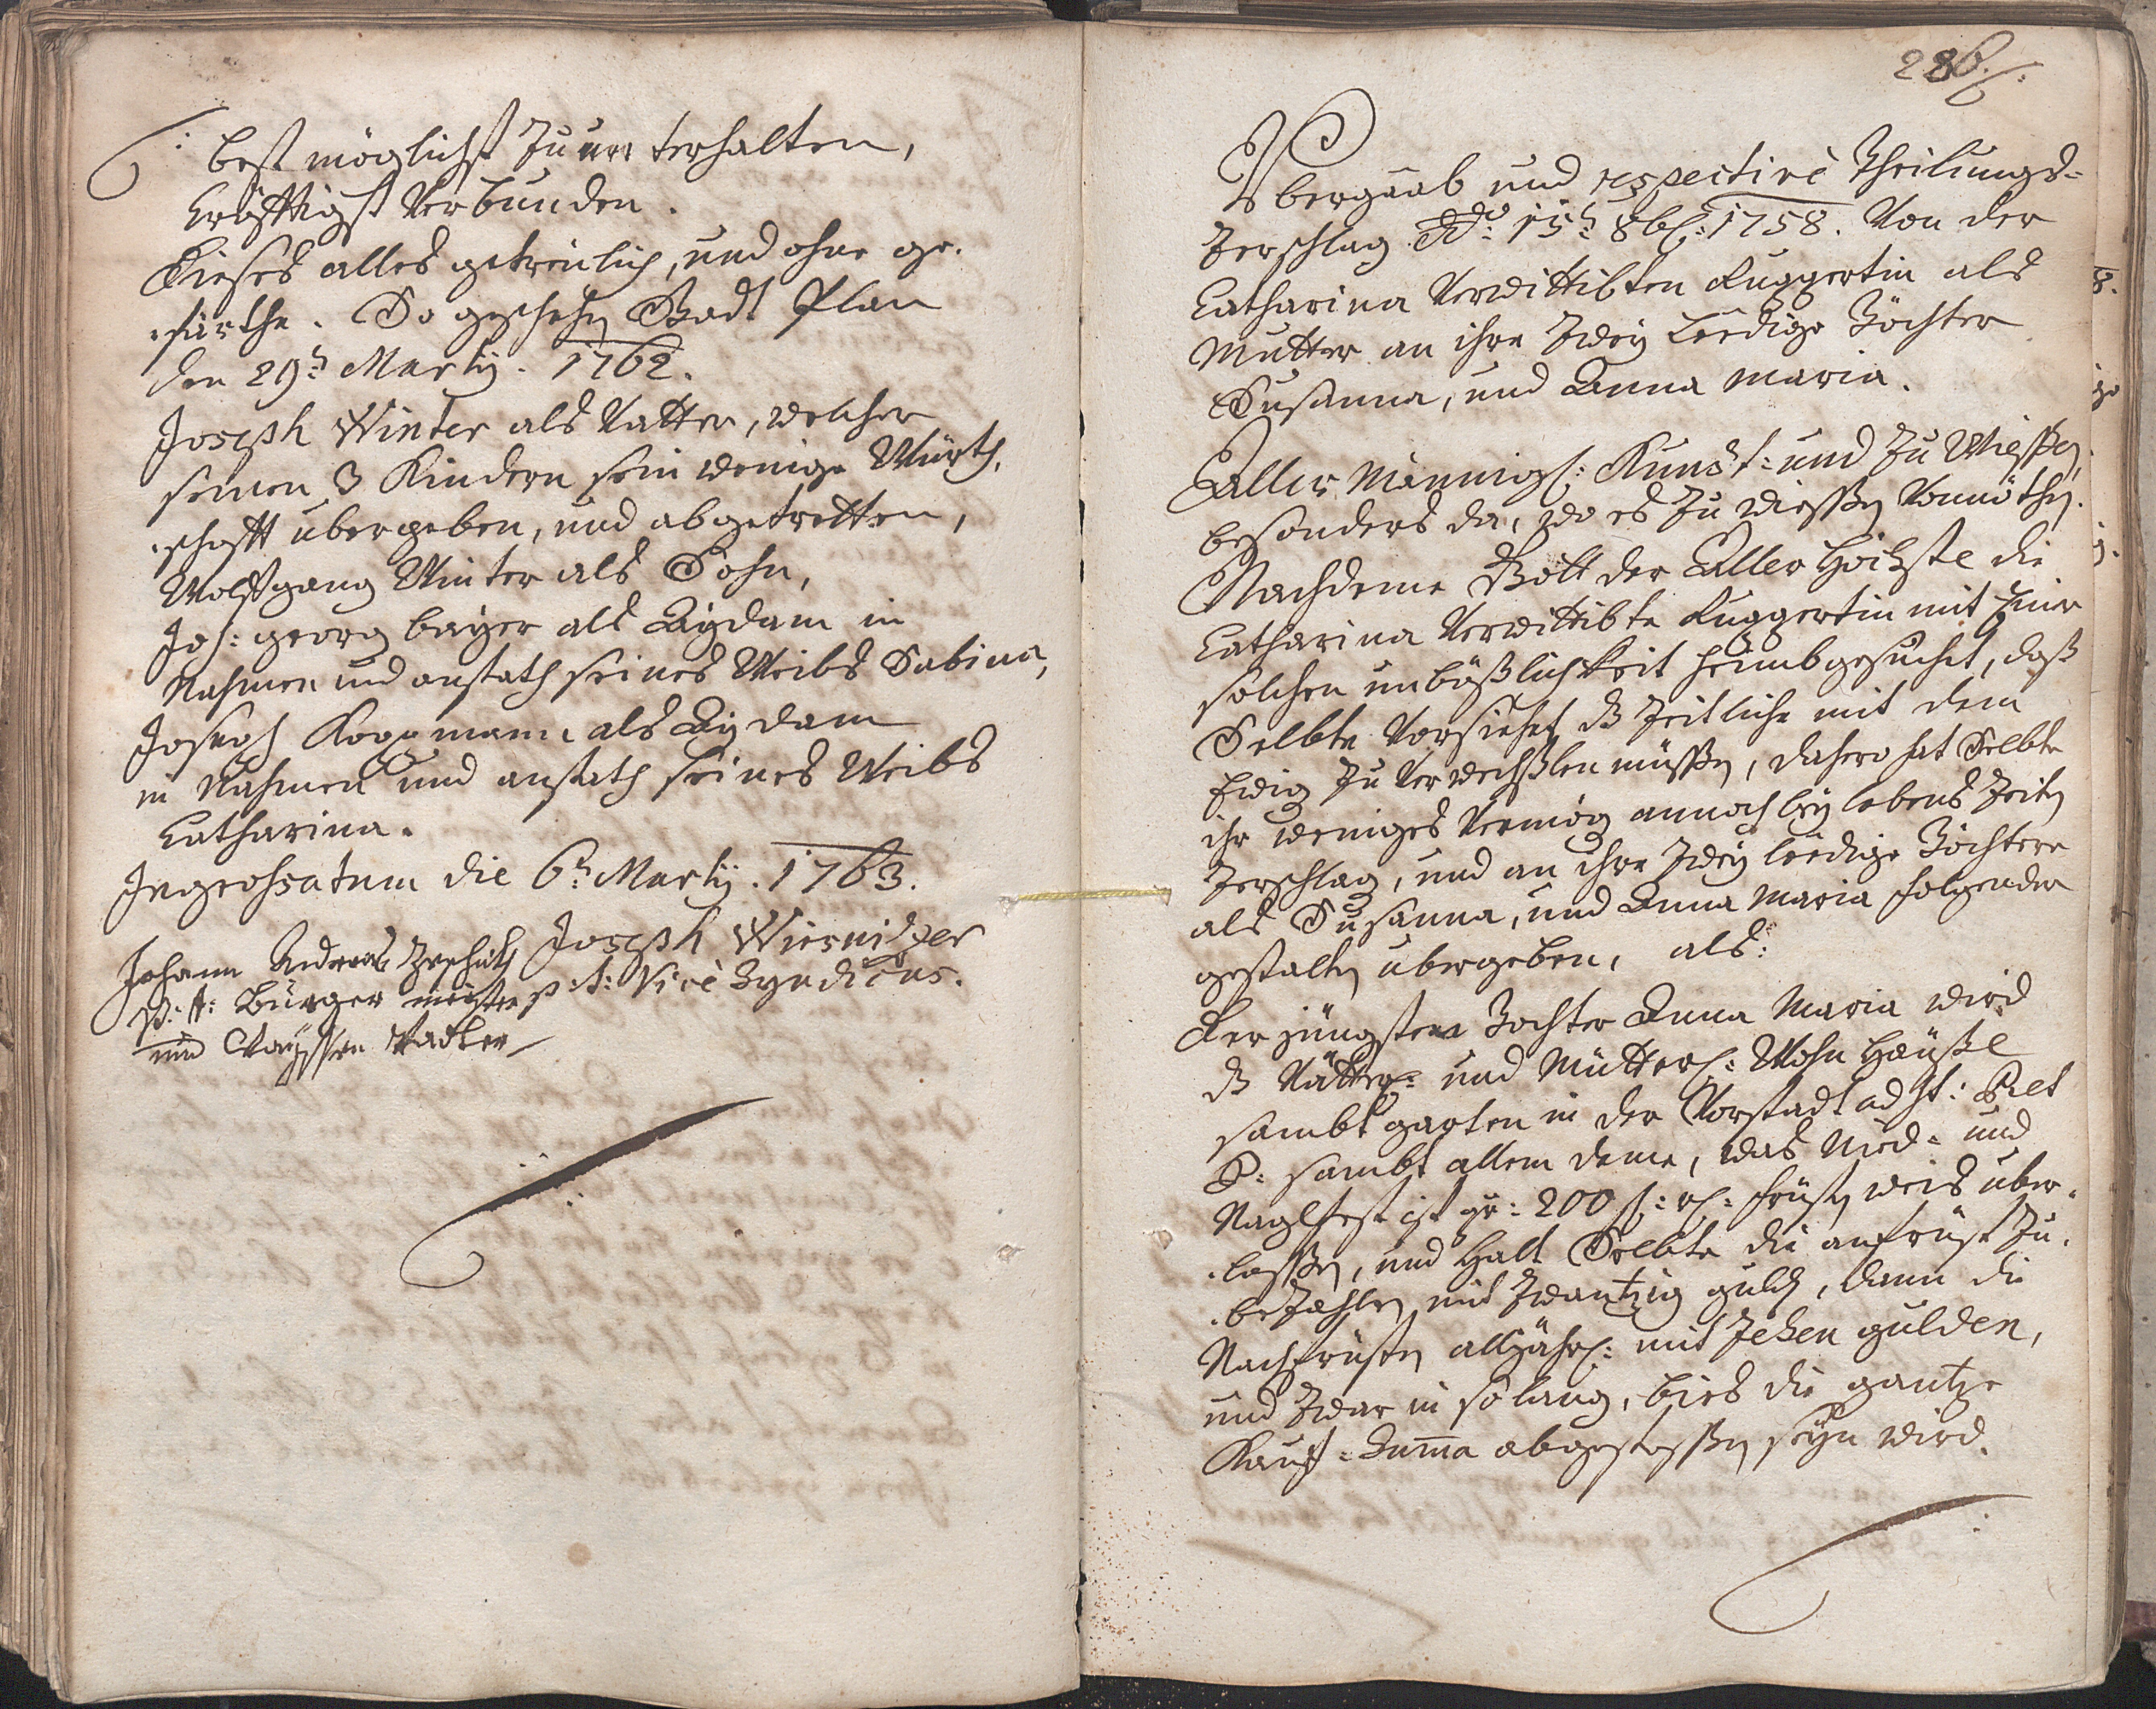 best möglichst zu unterhalten,
kräfftigst Verbunden.
Dieses alles getreülich, und ohne ge-
-färthe. So geschehen Stadt Plan
den 29t: Martij. 1762.
Joseph Winter als Vatter, welcher
seinen 3 Kindern sein wenige Würth-
-schafft übergeben, und abgetretten,
Wolffgang Winter als Sohn,
Joh: georg bayer als Aÿdam in
Nahmen und anstath seines Weibs Sabina,
Joseph als Aÿdam
in Nahmen und anstath seines Weibs
Catharina.
Ingrossatum die 6t: Martij. 1763.
Johann Andreas
p: t: Bürger meister
und Vadter
Joseph
p: t: Vice Syndicus.
286
Ubergaab und respective Theilungs-
Zerschlag Ddo: 15t: 8br: 1758. Von der
Catharina Verwittibten Ruggertin als
Mutter an ihre Zweÿ Leedige Töchter
Susanna, und Anna Maria.
Aller Männigl: Kundt: und zu Wießen,
besonders da, wo es zu wießen Vonnöthen.
Nachdeme Gott der Aller Höchste die
Catharina Verwittibte Ruggertin mit Einer
solchen unbäßlichkeit heimbgesuchet, daß
Selbte Vorsiehet, dß Zeitliche mit dem
Ewig zu Verwechslen müßen, dahero hat Selbte
ihr weniges Vermög annoch beÿ lebens Zeiten
Zerschlag, und an ihre Zweÿ Leedige Töchtere
als Susanna, und Anna Maria folgender
gestalten übergeben, als:
Der jüngstere Tochter Anna Maria wird
dß Vätter- und Mütterl: Wohn Häußl
sambt garten in der Vorstadt ad St: Pet
P: sambt allem deme, was Nied- und
Naglfest ist pr: 200 f: rh: fristen weis über-
-laßen, und Halt Selbte die anfrist zu-
-bezahlen mit Zwantzig guld, dann die
Nachfristen alljährl: mit Zehen gulden,
und zwar in so lang, bies die gantze
Kauf-Summa abgestoßen seÿn wird.